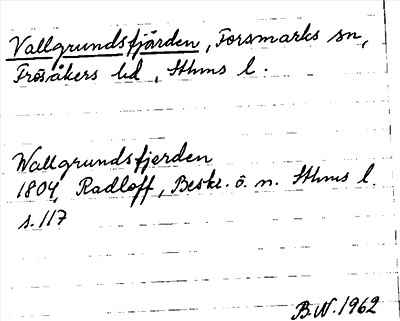 Vallgrundsfjärden, Forsmarks sn,
Frösåkers hd, Sthms l.
Wallgrundsfjerden
1804, Radloff, Beskr. ö. n. Sthms l.
s. 117
B.W. 1962